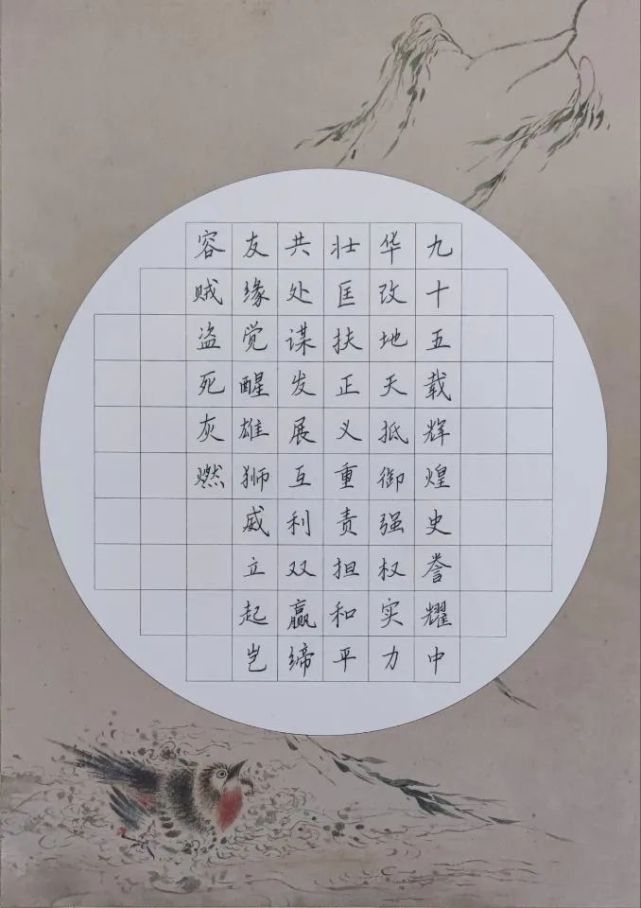 九十五载辉煌史誉耀中
华改地天抵御强权实力
壮匡扶正义重责担和平
共处谋发展互利双赢缔
友缘觉醒雄狮威立起岂
容贼盗死灰燃